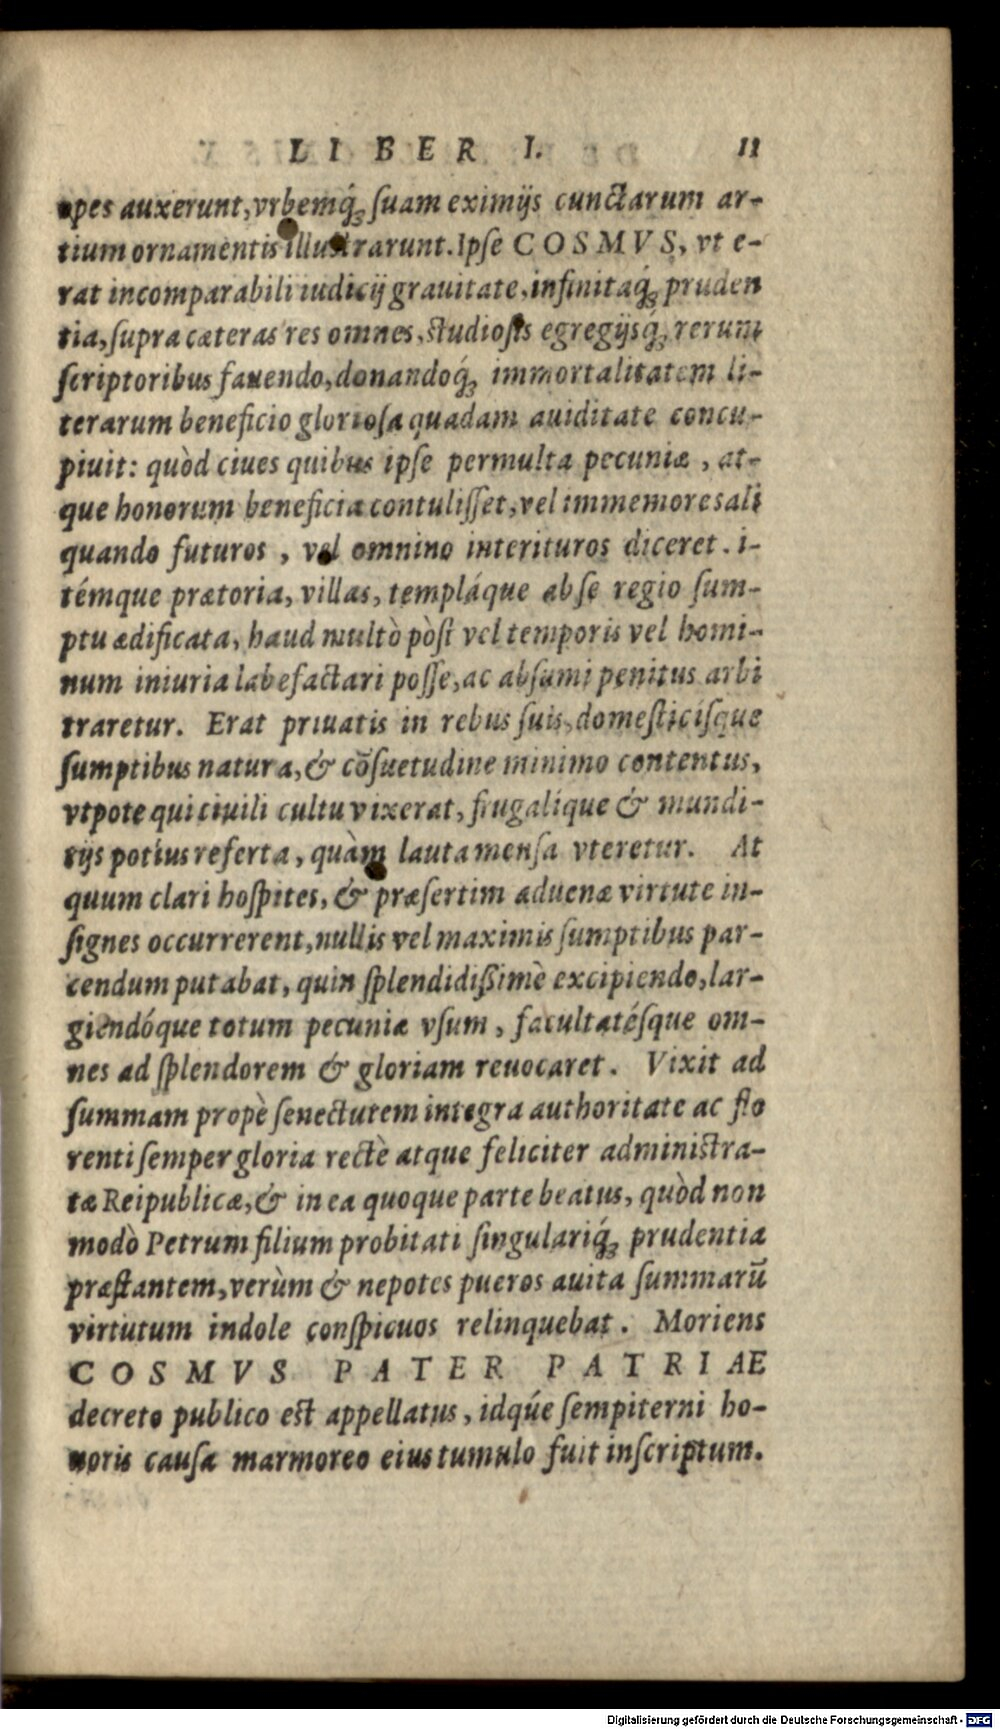 LIBER I. 11
opes auxerunt, vrbemq́; ſuam eximijs cunctarum ar-
tium ornamentis illuſtrarunt. Ipſe COSMVS, vt e-
rat incomparabili iudicij grauitate, infinitaq́; pruden
tia, ſupra cæteras res omnes, ſtudioſis egregijsq́; rerum
ſcriptoribus fauendo, donandoq́; immortalitatem li-
terarum beneficio glorioſa quadam auiditate concu-
piuit: quòd ciues quibus ipſe permulta pecuniæ, at-
que honorum beneficia contuliſſet, vel immemores ali
quando futuros, vel omnino interituros diceret. i-
témque prætoria, villas, templáque ab ſe regio ſum-
ptu ædificata, haud multò pòſt vel temporis vel homi-
num iniuria labefactari poſſe, ac abſumi penitus arbi
traretur. Erat priuatis in rebus ſuis, domeſticiſque
ſumptibus natura, & cōſuetudine minimo contentus,
vtpote qui ciuili cultu vixerat, frugalíque & mundi-
tijs potius referta, quàm lauta menſa vteretur. At
quum clari hoſpites, & præſertim aduenæ virtute in-
ſignes occurrerent, nullis vel maximis ſumptibus par-
cendum putabat, quin ſplendidißimè excipiendo, lar-
giendóque totum pecuniæ vſum, facultatéſque om-
nes ad ſplendorem & gloriam reuocaret. Vixit ad
ſummam propè ſenectutem integra authoritate ac flo
renti ſemper gloria rectè atque feliciter adminiſtra-
tæ Reipublicæ, & in ea quoque parte beatus, quòd non
modò Petrum filium probitati ſingulariq́; prudentia
præſtantem, verùm & nepotes pueros auita ſummarū
virtutum indole conſpicuos relinquebat. Moriens
COSMVS PATER PATRIAE
decreto publico eſt appellatus, idqúe ſempiterni ho-
noris cauſa marmoreo eius tumulo fuit inſcriptum.
Digitalisierung gefördert durch die Deutsche Forschungsgemeinschaft - DFG